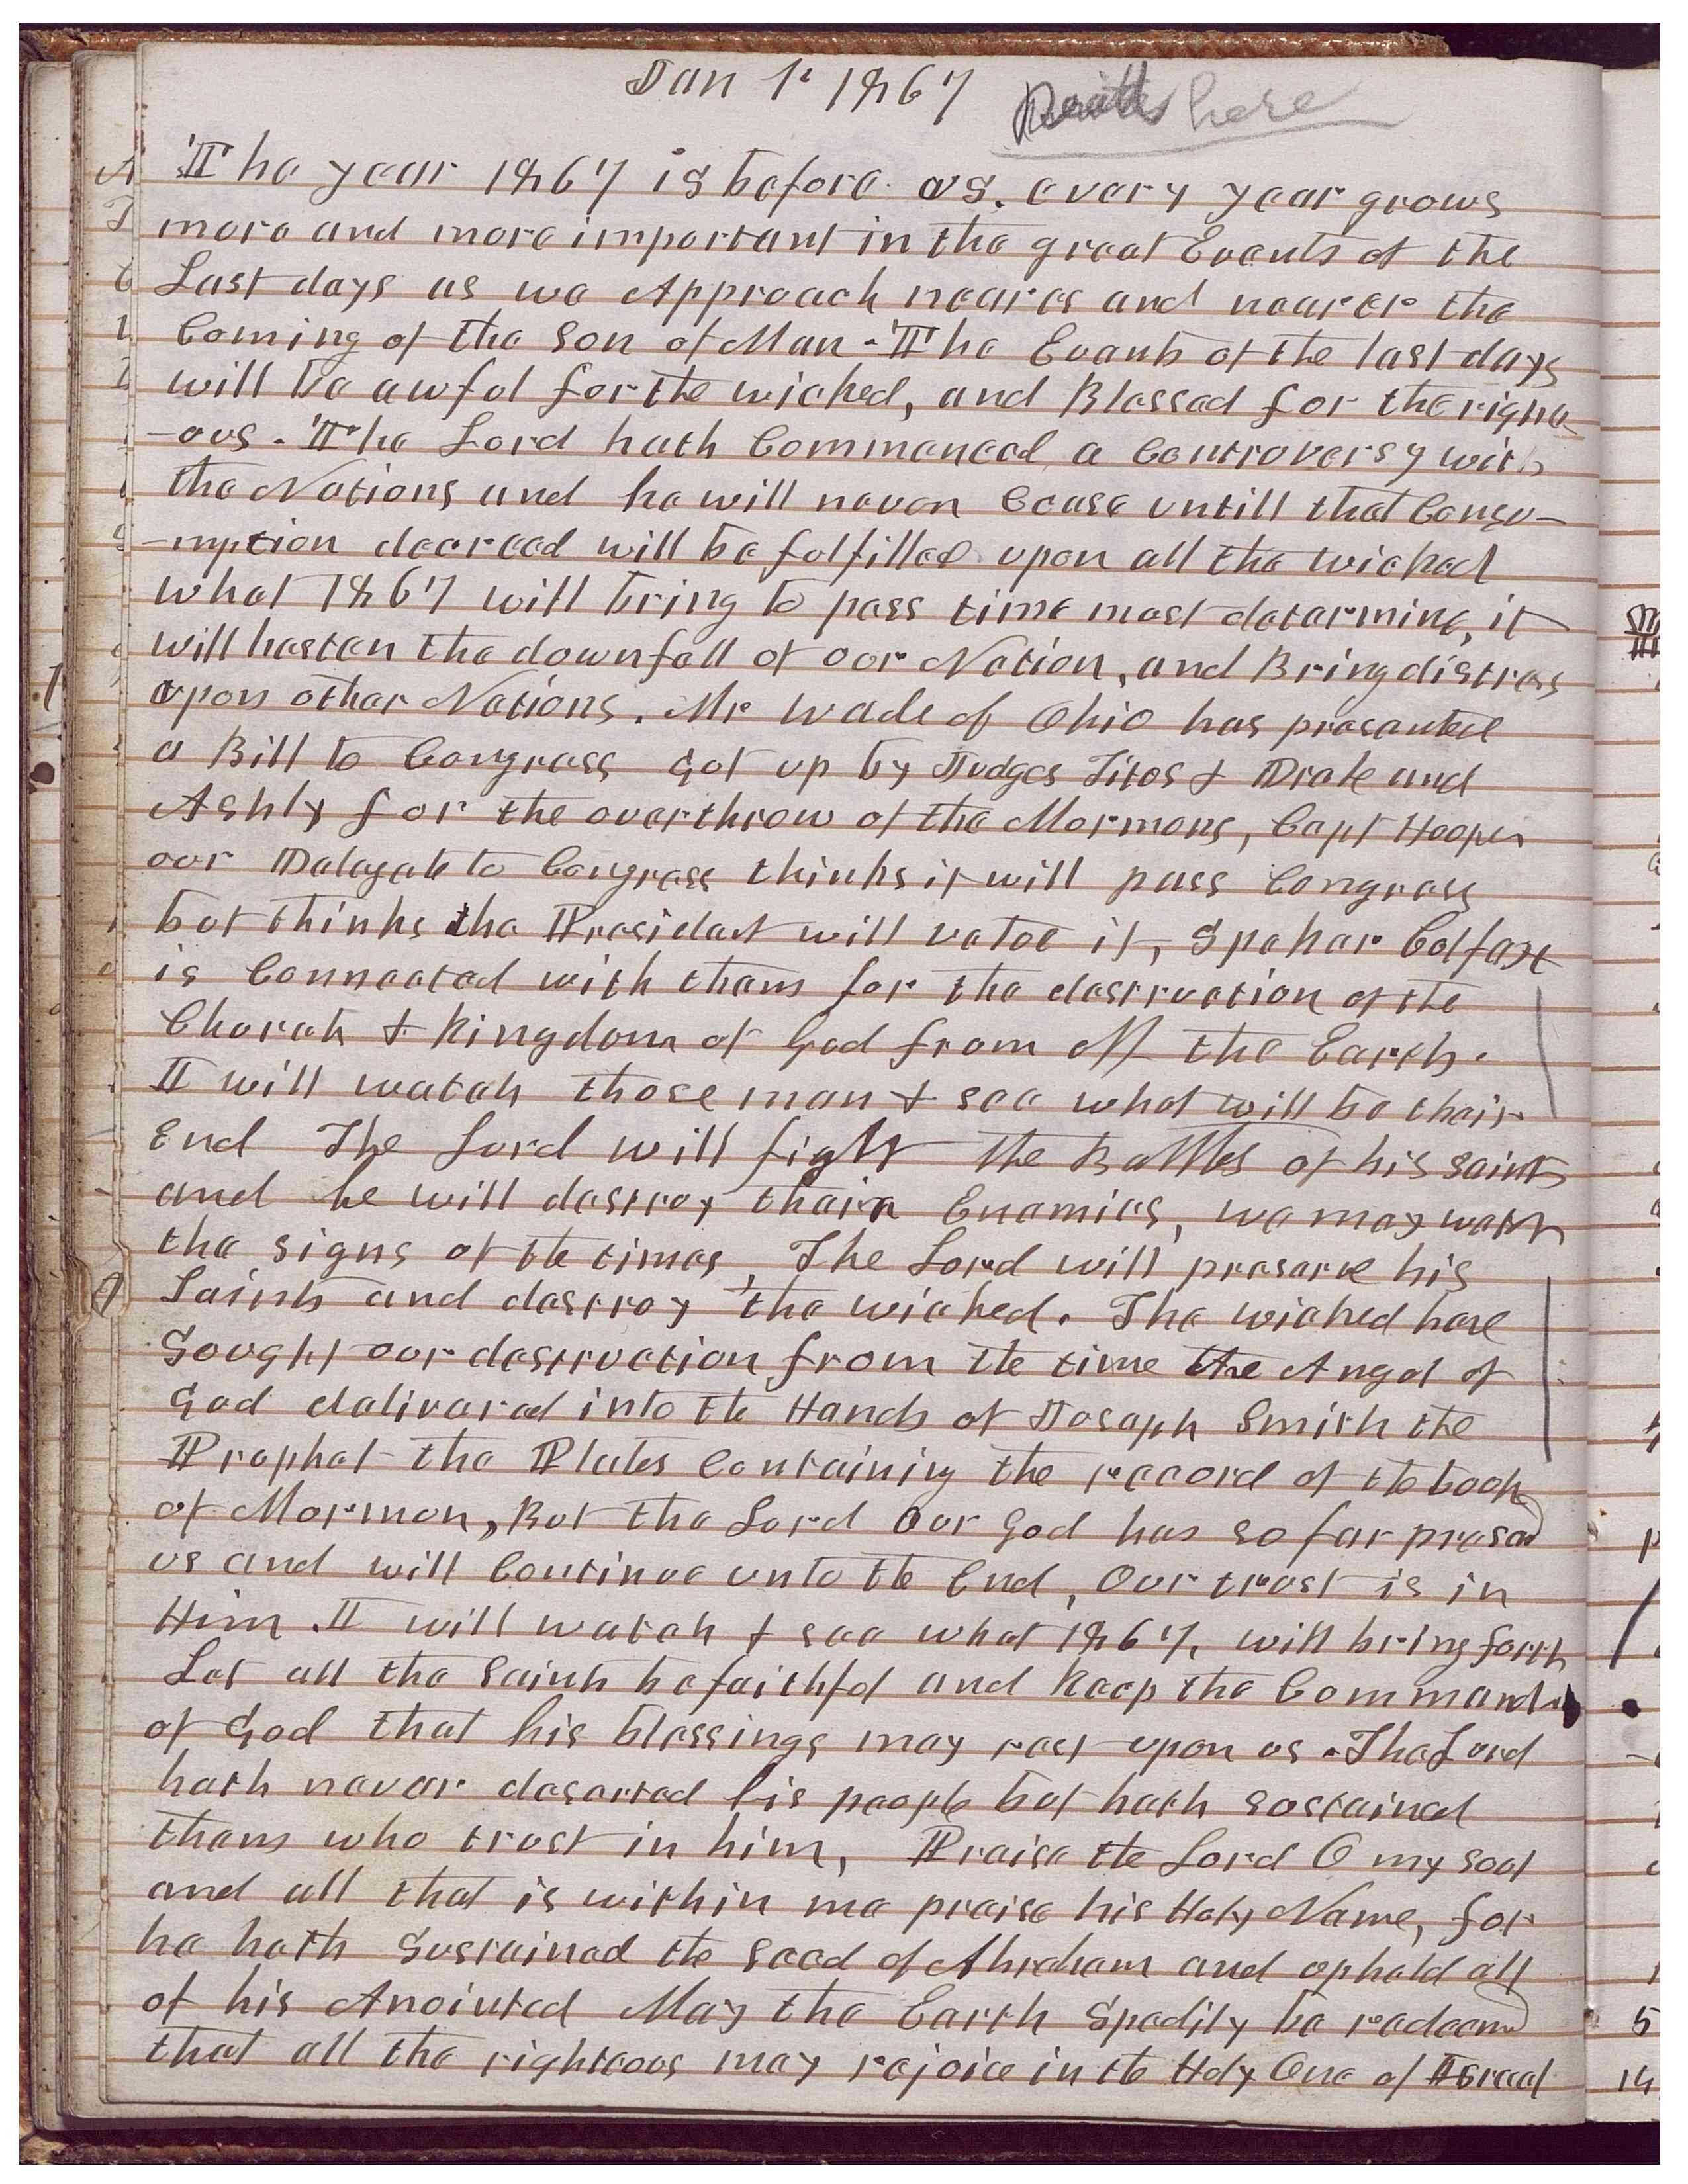 Jan 1st 1867 here
The year 1867 is before us. every year grows
more and more important in the great Events of the
Last days as we Approach nearer and nearer the
Coming of the Son of Man. The Events of the last days
will be awful for the wicked, and Blessed for the righte
-ous. The Lord hath Commenced a Controversy with
the Nations and he will never Cease untill that Consu-
-mption decreed will be fulfilled upon all the wicked
what 1867 will bring to pass time must determine, it
will hasten the downfall of our Nation, and Bring distress
upon other Nations. Mr Wade of Ohio has presented
a Bill to Congress got up by Judges Titus & Drake and
Ashly for the overthrow of the Mormons, Capt Hooper
our Delegate to Congress thinks it will pass Congress
but thinks the President will vetoe it, Speker Colfax
is Connected with them for the destruction of the
Church & Kingdom of God from off the Earth.
I will watch those men & see what will be their
End The Lord will fight the Battles of his Saints
and he will destroy their Enemies, we may watch
the signs of the times, The Lord will preserve his
Saints and destroy the wicked. The wicked have
Sought our destruction from the time the Angel of
God delivered into the Hands of Joseph Smith the
Prophet the Plates Containing the record of the book
of Mormon, But the Lord Our God has so far presevd
us and will Continue unto the End, Our trust is in
Him. I will watch & see what 1867, will bring forth
Let all the Saints be faithful and Keep the Commands
of God that his blessings may rest upon us. The Lord
hath never deserted his people but hath sustained
them who trust in him, Praise the Lord O my soul
and all that is within me praise his Holy Name, for
he hath Sustained the seed of Abraham and upheld all
of his Anointed May the Earth Spedily be redeemd
that all the righteous may rejoice in the Holy One of Israel